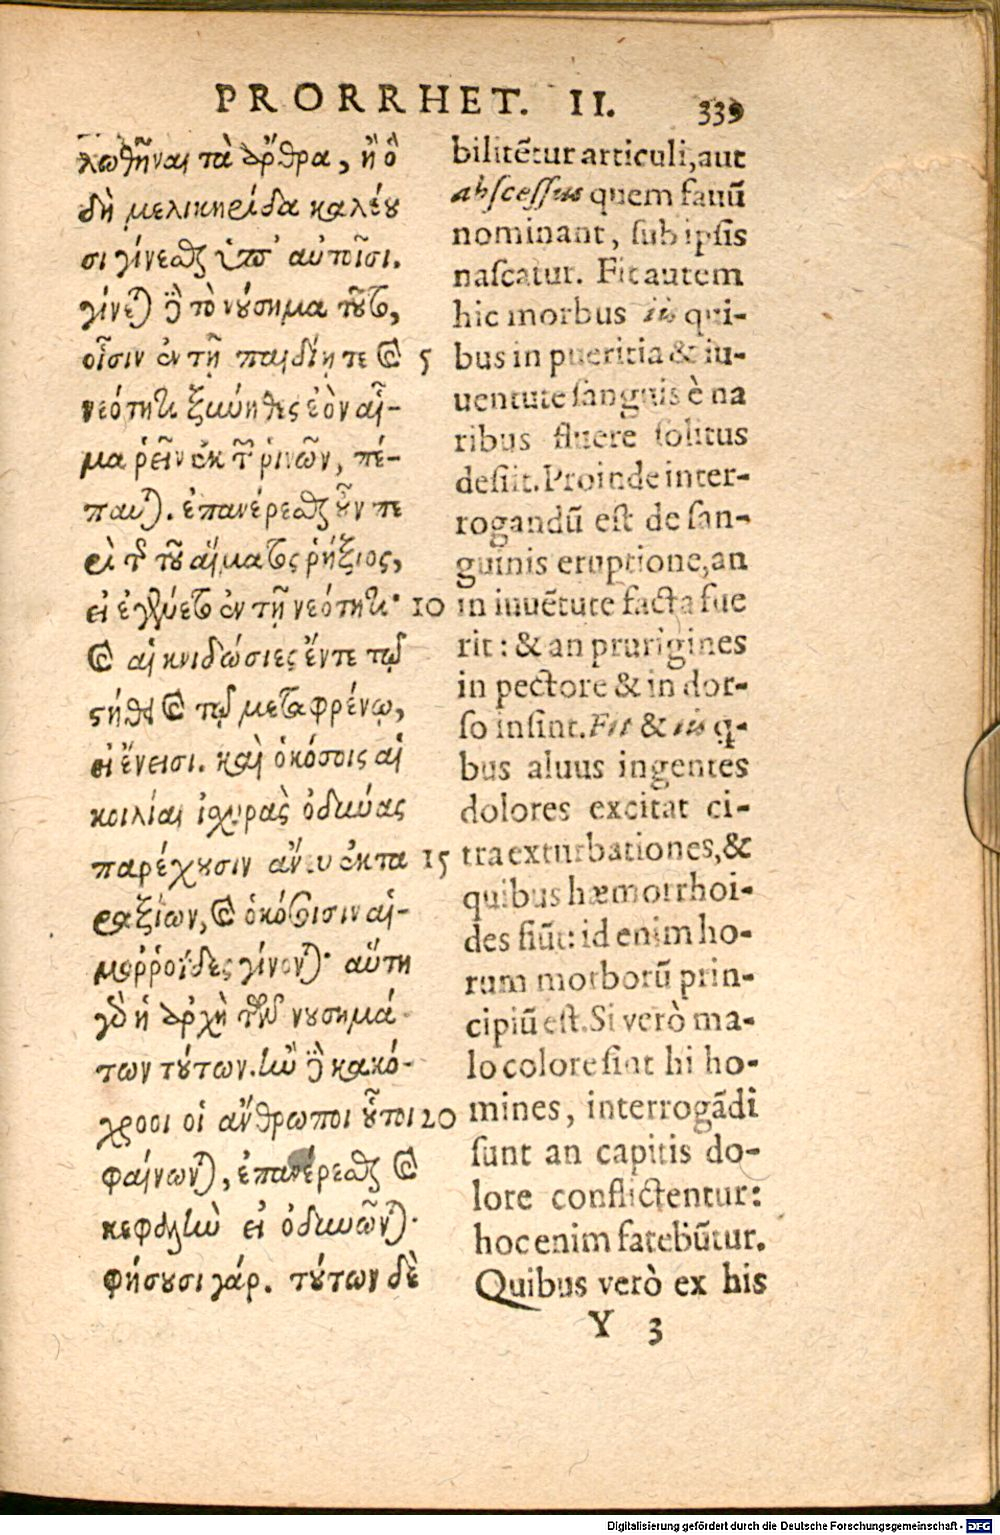 PRORRHET. II. 339
λωθῆναι τὰ ἄρθρα, ἢ ὃ
δὴ μελικηρίδα καλέου
σι γίνεσθαι ὑπ' αὐτοῖσι.
γίνεται δὲ τὸ νούσημα τοῦτο,
οἷσιν ἐν τῇ παιδίῃ τε καὶ 5
νεότητι ξυνηθες ἐὸν αἷ-
μα ῥεῖν ἐκ τῶν ῥινῶν, πέ-
παυται. ἐπανέρεσθαι οὖν πε
ρὶ τῆς τοῦ αἵματος ῥήξιος,
εἰ ἐγένετο ἐν τῇ νεότητι· 10
καὶ αἱ κνιδώσιες ἔν τε τῷ
στήθει καὶ τῷ μεταφρένῳ,
εἰ ἔνεισι. καὶ ὁκόσοις αἱ
κοιλίαι ἰσχυρὰς ὀδύνας
παρέχουσιν ἄνευ ἐκτα 15
ραξίων, καὶ ὁκόσοισιν αἱ-
μορροΐδες γίνονται· αὕτη
γὰρ ἡ ἀρχὴ τῶν νουσημά
των τούτων. ἢν δὲ κακό-
χροοι οἱ ἄνθρωποι οὗτοι 20
φαίνωνται, ἐπανέρεσθαι καὶ
κεφαλὴν εἰ ὀδυνῶνται·
φήσουσι γάρ. τούτων δὲ
bilitẽtur articuli, aut
abscessus quem fauũ
nominant, sub ipsis
nascatur. Fit autem
hic morbus iis qui-
bus in pueritia & iu-
uentute sanguis è na
ribus fluere solitus
desiit. Proinde inter-
rogandũ est de san-
guinis eruptione, an
in iuuẽtute facta fue
rit: & an prurigines
in pectore & in dor-
so insint. Fit & iis q-
bus aluus ingentes
dolores excitat ci-
tra exturbationes, &
quibus hæmorrhoi-
des fiũt: id enim ho-
rum morborũ prin-
cipiũ est. Si verò ma-
lo colore sint hi ho-
mines, interrogãdi
sunt an capitis do-
lore conflictentur:
hoc enim fatebũtur.
Quibus verò ex his
Y 3
Digitalisierung gefördert durch die Deutsche Forschungsgemeinschaft - DFG